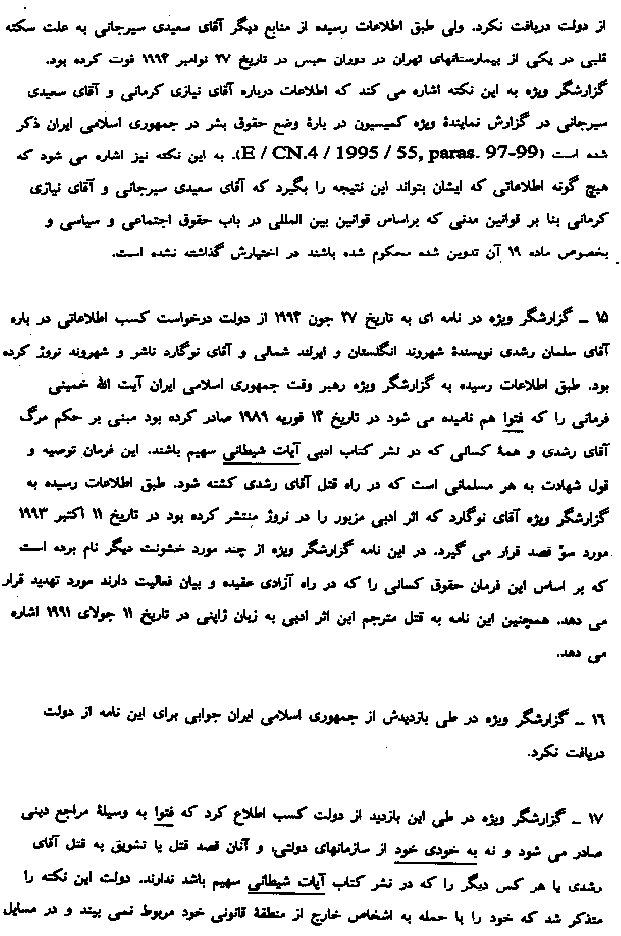 از دولت دریافت نکرد. ولی طبق اطلاعات رسیده از منابع دیگر آقای سعیدی سیرجانی به علت سکته
قلبی در یکی از بیمارستانهای تهران در دوران حبس در تاریخ ۲۷ نوامبر ۱۹۹۴ فوت کرده بود.
گزارشگر ویژه به این نکته اشاره می کند که اطلاعات درباره آقای نیازی کرمانی و آقای سعیدی
سیرجانی در گزارش نمایندهٔ ویژه کمیسیون در بارهٔ وضع حقوق بشر در جمهوری اسلامی ایران ذکر
شده است (E / CN.4 / 1995 / 55, paras. 97-99). به این نکته نیز اشاره می شود که
هیچ گونه اطلاعاتی که ایشان بتواند این نتیجه را بگیرد که آقای سعیدی سیرجانی و آقای نیازی
کرمانی بنا بر قوانین مدنی که براساس قوانین بین المللی در باب حقوق اجتماعی و سیاسی و
بخصوص ماده ۱۹ آن تدوین شده محکوم شده باشند در اختیارش گذاشته نشده است.
۱۵ – گزارشگر ویژه در نامه ای به تاریخ ۲۷ جون ۱۹۹۴ از دولت درخواست کسب اطلاعاتی در باره
آقای سلمان رشدی نویسندهٔ شهروند انگلستان و ایرلند شمالی و آقای نوگارد ناشر و شهروند نروژ کرده
بود. طبق اطلاعات رسیده به گزارشگر ویژه رهبر وقت جمهوری اسلامی ایران آیت الله خمینی
فرمانی را که فتوا هم نامیده می شود در تاریخ ۱۴ فوریه ۱۹۸۹ صادر کرده بود مبنی بر حکم مرگ
آقای رشدی و همهٔ کسانی که در نشر کتاب ادبی آیات شیطانی سهیم باشند. این فرمان توصیه و
قول شهادت به هر مسلمانی است که در راه قتل آقای رشدی کشته شود. طبق اطلاعات رسیده به
گزارشگر ویژه آقای نوگارد که اثر ادبی مزبور را در نروژ منتشر کرده بود در تاریخ ۱۱ اکتبر ۱۹۹۳
مورد سوّ قصد قرار می گیرد. در این نامه گزارشگر ویژه از چند مورد خشونت دیگر نام برده است
که بر اساس این فرمان حقوق کسانی را که در راه آزادی عقیده و بیان فعالیت دارند مورد تهدید قرار
می دهد. همچنین این نامه به قتل مترجم این اثر ادبی به زبان ژاپنی در تاریخ ۱۱ جولای ۱۹۹۱ اشاره
می دهد.
۱۶ – گزارشگر ویژه در طی بازدیدش از جمهوری اسلامی ایران جوابی برای این نامه از دولت
دریافت نکرد.
۱۷ – گزارشگر ویژه در طی این بازدید از دولت کسب اطلاع کرد که فتوا به وسیلهٔ مراجع دینی
صادر می شود و نه به خودی خود از سازمانهای دولتی، و آنان قصد قتل یا تشویق به قتل آقای
رشدی یا هر کس دیگر را که در نشر کتاب آیات شیطانی سهیم باشد ندارند. دولت این نکته را
متذکر شد که خود را با حمله به اشخاص خارج از منطقهٔ قانونی خود مربوط نمی بیند و در مسایل